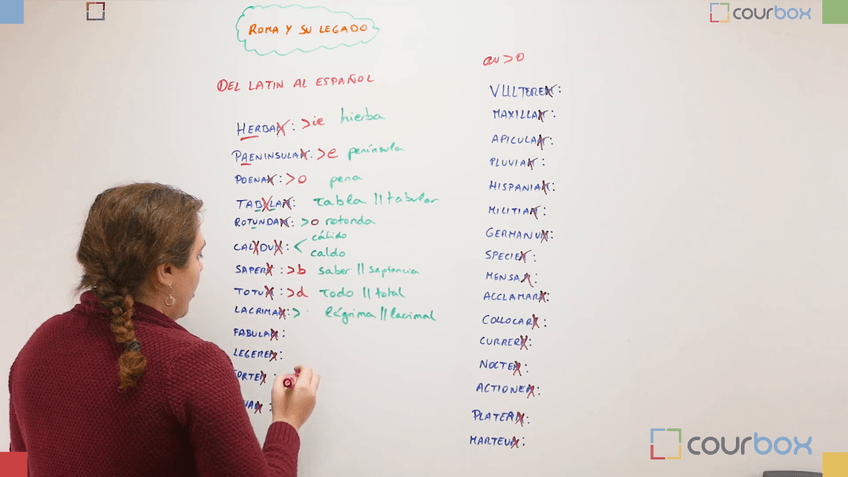 courbox
ROMA Y SU LEGADO
DEL LATIN AL ESPAÑOL
HERBAM: >ie hierba
PAENINSULAM: >e península
POENAM: >o pena
TABULAM: tabla || tabular
ROTUNDAM: >o rotonda
CALIDUM: < cálido
caldo
SAPERE: >b saber || sapiencia
TOTUM: >d Todo || total
LACRIMAM: > lágrima || lacrimal
FABULAM:
LEGEREM:
au>o
VULTUREM:
MAXILLAM:
APICULAM:
PLUVIAM:
HISPANIAM:
MILITIAM:
GERMANUM:
SPECIEM:
MENSAM:
ACCLAMARE:
COLLOCARE:
CURRERE:
NOCTEM:
ACTIONEM:
PLATEAM:
MARTEUM:
courbox